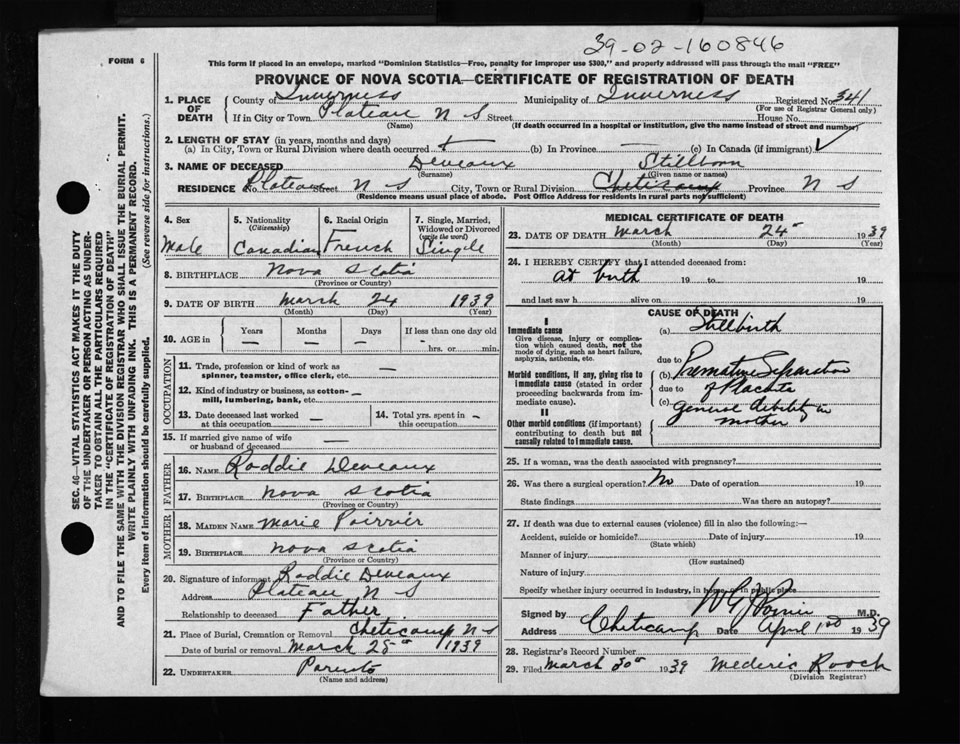 39-02-160846
FORM 6
This form if placed in an envelope, marked "Dominion Statistics—Free, penalty for improper use $300," and properly addressed will pass through the mail "FREE"
PROVINCE OF NOVA SCOTIA—CERTIFICATE OF REGISTRATION OF DEATH
1. PLACE OF DEATH
County of Inverness Municipality of Inverness Registered No. 341
(For use of Registrar General only)
If in City or Town Plateau N S Street House No.
(Name) (If death occurred in a hospital or institution, give the name instead of street and number)
2. LENGTH OF STAY (in years, months and days)
(a) In City, Town or Rural Division where death occurred (b) In Province — (c) In Canada (if immigrant) ✓
3. NAME OF DECEASED Deveaux Stillborn
(Surname) (Given name or names)
RESIDENCE Plateau Street N S City, Town or Rural Division Cheticamp Province N S
(Residence means usual place of abode. Post Office Address for residents in rural parts not sufficient)
SEC. 46—VITAL STATISTICS ACT MAKES IT THE DUTY
OF THE UNDERTAKER OR PERSON ACTING AS UNDER-
TAKER TO OBTAIN ALL THE PARTICULARS REQUIRED
IN THE "CERTIFICATE OF REGISTRATION OF DEATH"
AND TO FILE THE SAME WITH THE DIVISION REGISTRAR WHO SHALL ISSUE THE BURIAL PERMIT.
WRITE PLAINLY WITH UNFADING INK. THIS IS A PERMANENT RECORD.
Every item of information should be carefully supplied. (See reverse side for instructions.)
4. Sex
Male
5. Nationality
(Citizenship)
Canadian
6. Racial Origin
French
7. Single, Married,
Widowed or Divorced
(write the word)
Single
8. BIRTHPLACE Nova Scotia
(Province or Country)
9. DATE OF BIRTH March 24 1939
(Month) (Day) (Year)
10. AGE in
Years Months Days If less than one day old
— — — -
hrs. or min.
OCCUPATION
11. Trade, profession or kind of work as
spinner, teamster, office clerk, etc. —
12. Kind of industry or business, as cotton-
mill, lumbering, bank, etc. —
13. Date deceased last worked
at this occupation —
14. Total yrs. spent in
this occupation -
15. If married give name of wife
or husband of deceased —
FATHER
16. NAME Roddie Deveaux
17. BIRTHPLACE Nova Scotia
(Province or Country)
MOTHER
18. MAIDEN NAME Marie Poirrier
19. BIRTHPLACE Nova Scotia
(Province or Country)
20. Signature of informant Roddie Deveaux
Address Plateau N S
Relationship to deceased Father
21. Place of Burial, Cremation or Removal Cheticamp N S
Date of burial or removal March 25 1939
22. UNDERTAKER Parents
(Name and address)
MEDICAL CERTIFICATE OF DEATH
23. DATE OF DEATH March 24 1939
(Month) (Day) (Year)
24. I HEREBY CERTIFY that I attended deceased from:
at birth 19 to 19
and last saw h alive on 19
CAUSE OF DEATH
I
Immediate cause
Give disease, injury or complica-
tion which caused death, not the
mode of dying, such as heart failure,
asphyxia, asthenia, etc.
(a) Stillbirth
due to
Morbid conditions, if any, giving rise to
immediate cause (stated in order
proceeding backwards from im-
mediate cause).
(b) Premature Separation
due to of Placenta
(c) general debility in
mother
II
Other morbid conditions (if important)
contributing to death but not
causally related to immediate cause.
25. If a woman, was the death associated with pregnancy?
26. Was there a surgical operation? No Date of operation 19
State findings Was there an autopsy?
27. If death was due to external causes (violence) fill in also the following:—
Accident, suicide or homicide? Date of injury 19
(State which)
Manner of injury
(How sustained)
Nature of injury
Specify whether injury occurred in industry, in home, or in public place
Signed by M.D.
Address Cheticamp Date April 1st 1939
28. Registrar's Record Number
29. Filed March 30 1939 Mederic Rooch
(Division Registrar)